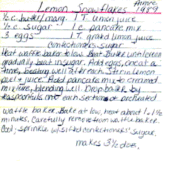 Lemon Snowflakes
1/2 c. butter/marg. 1 T. lemon juice
1/2 c. sugar 1 c. pancake mix
3 eggs 1 T. grated lemon juice
confectioners sugar
Heat waffle baker to low. Beat butter until
gradually beat in sugar. Add eggs, one at a
time, beating well after each. Stir in lemon
peel & juice. Add pancake mix to creamed
mixture, blending well. Drop baker by
teaspoonfuls onto each section of preheated
waffle baker. Bake at low, heat about 1-1 1/2
minutes. Carefully remove from waffle baker.
Cool, sprinkle with sifted confectioners' sugar.
makes 3 1/2 doz.